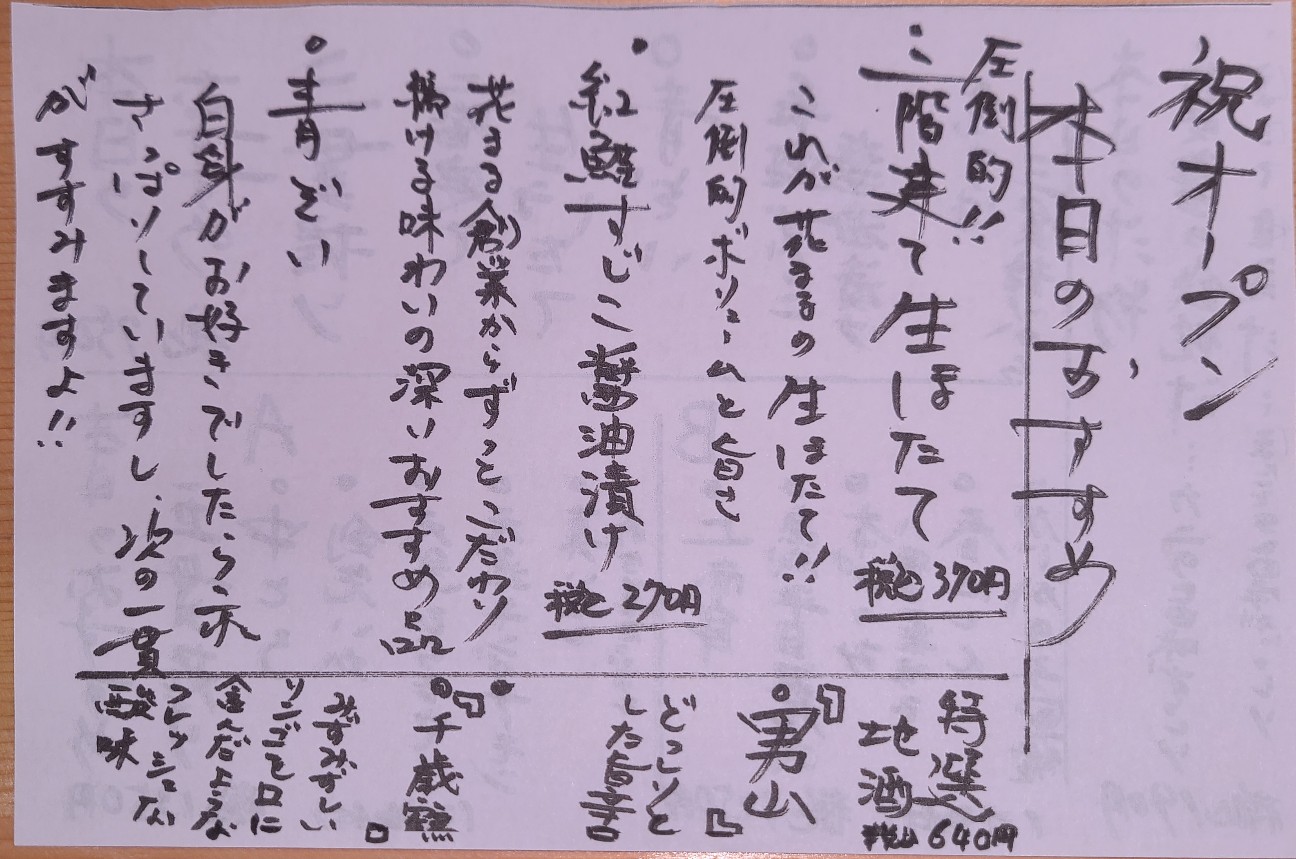 祝オープン
本日のおすすめ
圧倒的!!
二階建て生ほたて
税込370円
これが花まるの生ほたて!!
圧倒的ボリュームと旨さ
紅鮭すじこ醤油漬け
税込270円
花まる創業からずっとこだわり
続ける味わいの深いおすすめ品
青ぞい
白身がお好きでしたら是非
さっぱりしていますし、次の一貫
がすすみますよ!!
特選
地酒
税込640円
「男山」
どっしりと
した旨辛
「千歳鶴」
みずみずしい
リンゴを口に
含んだような
フレッシュな
酸味